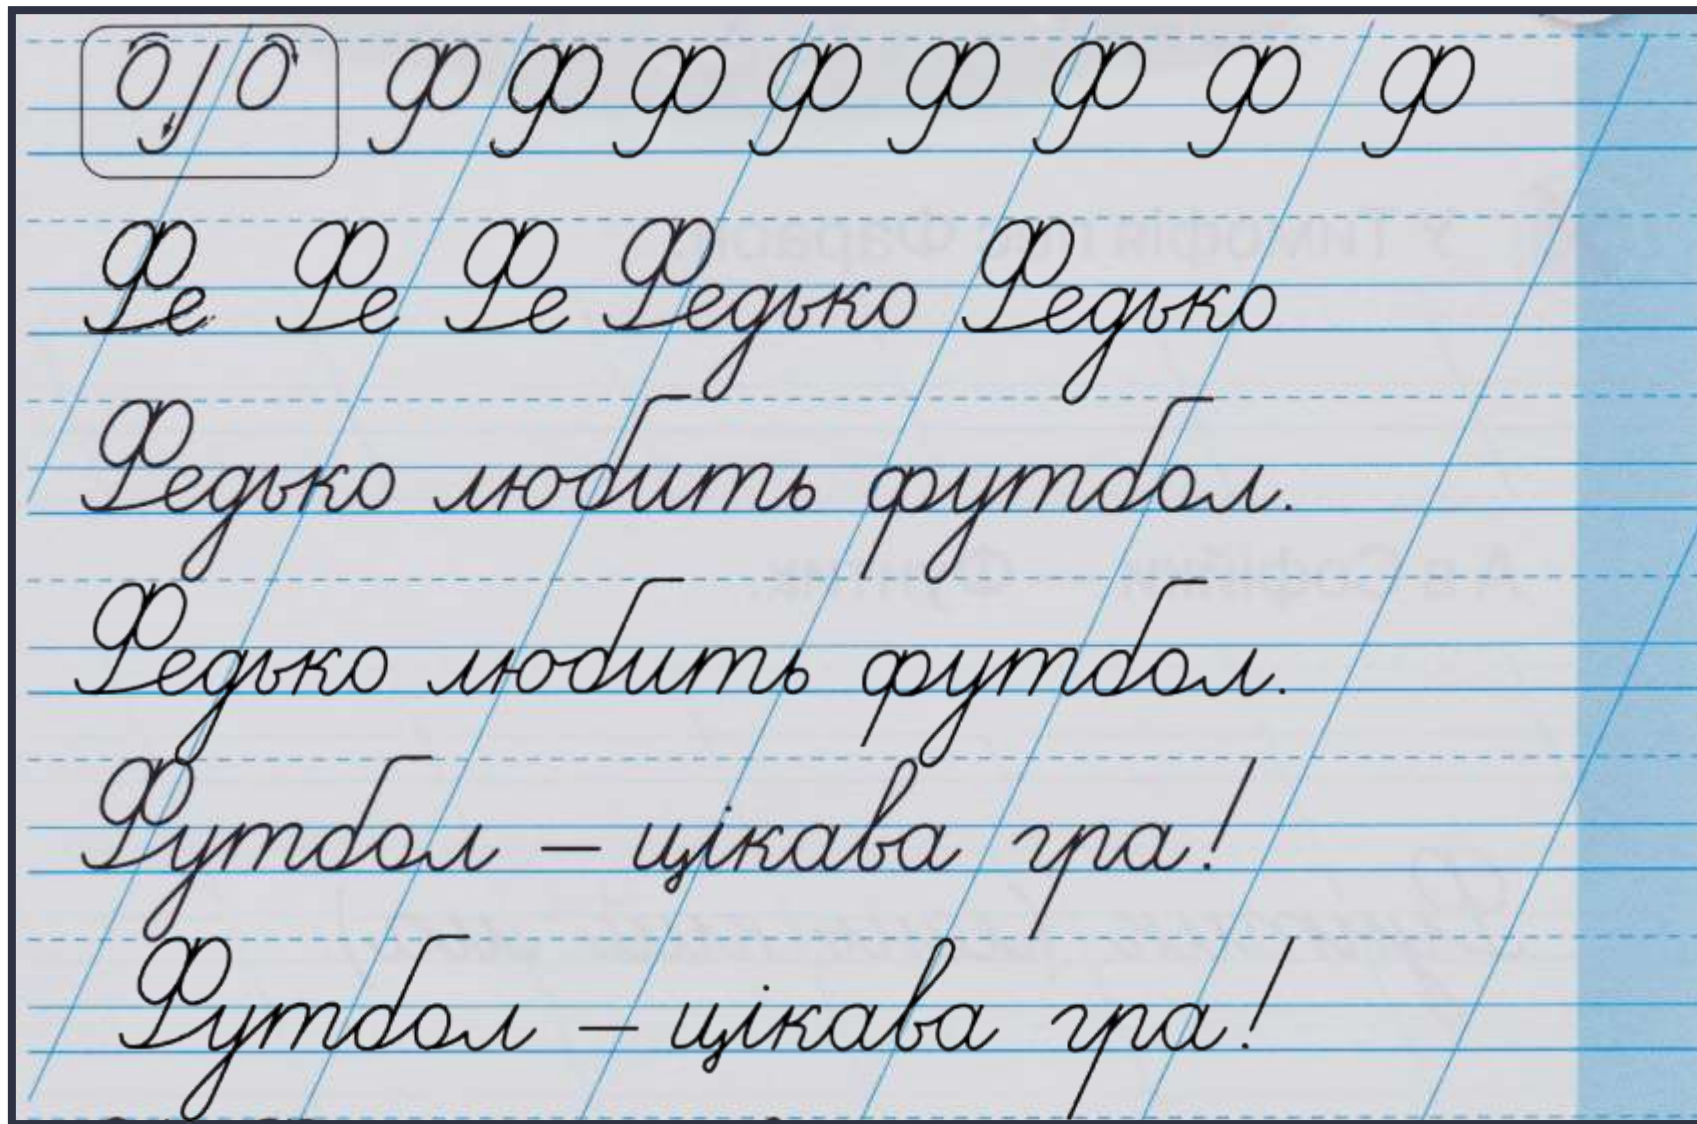 Ф Ф Ф Ф Ф Ф Ф Ф
Фе Фе Фе Федько Федько
Федько любить футбол.
Федько любить футбол.
Футбол – цікава гра!
Футбол – цікава гра!